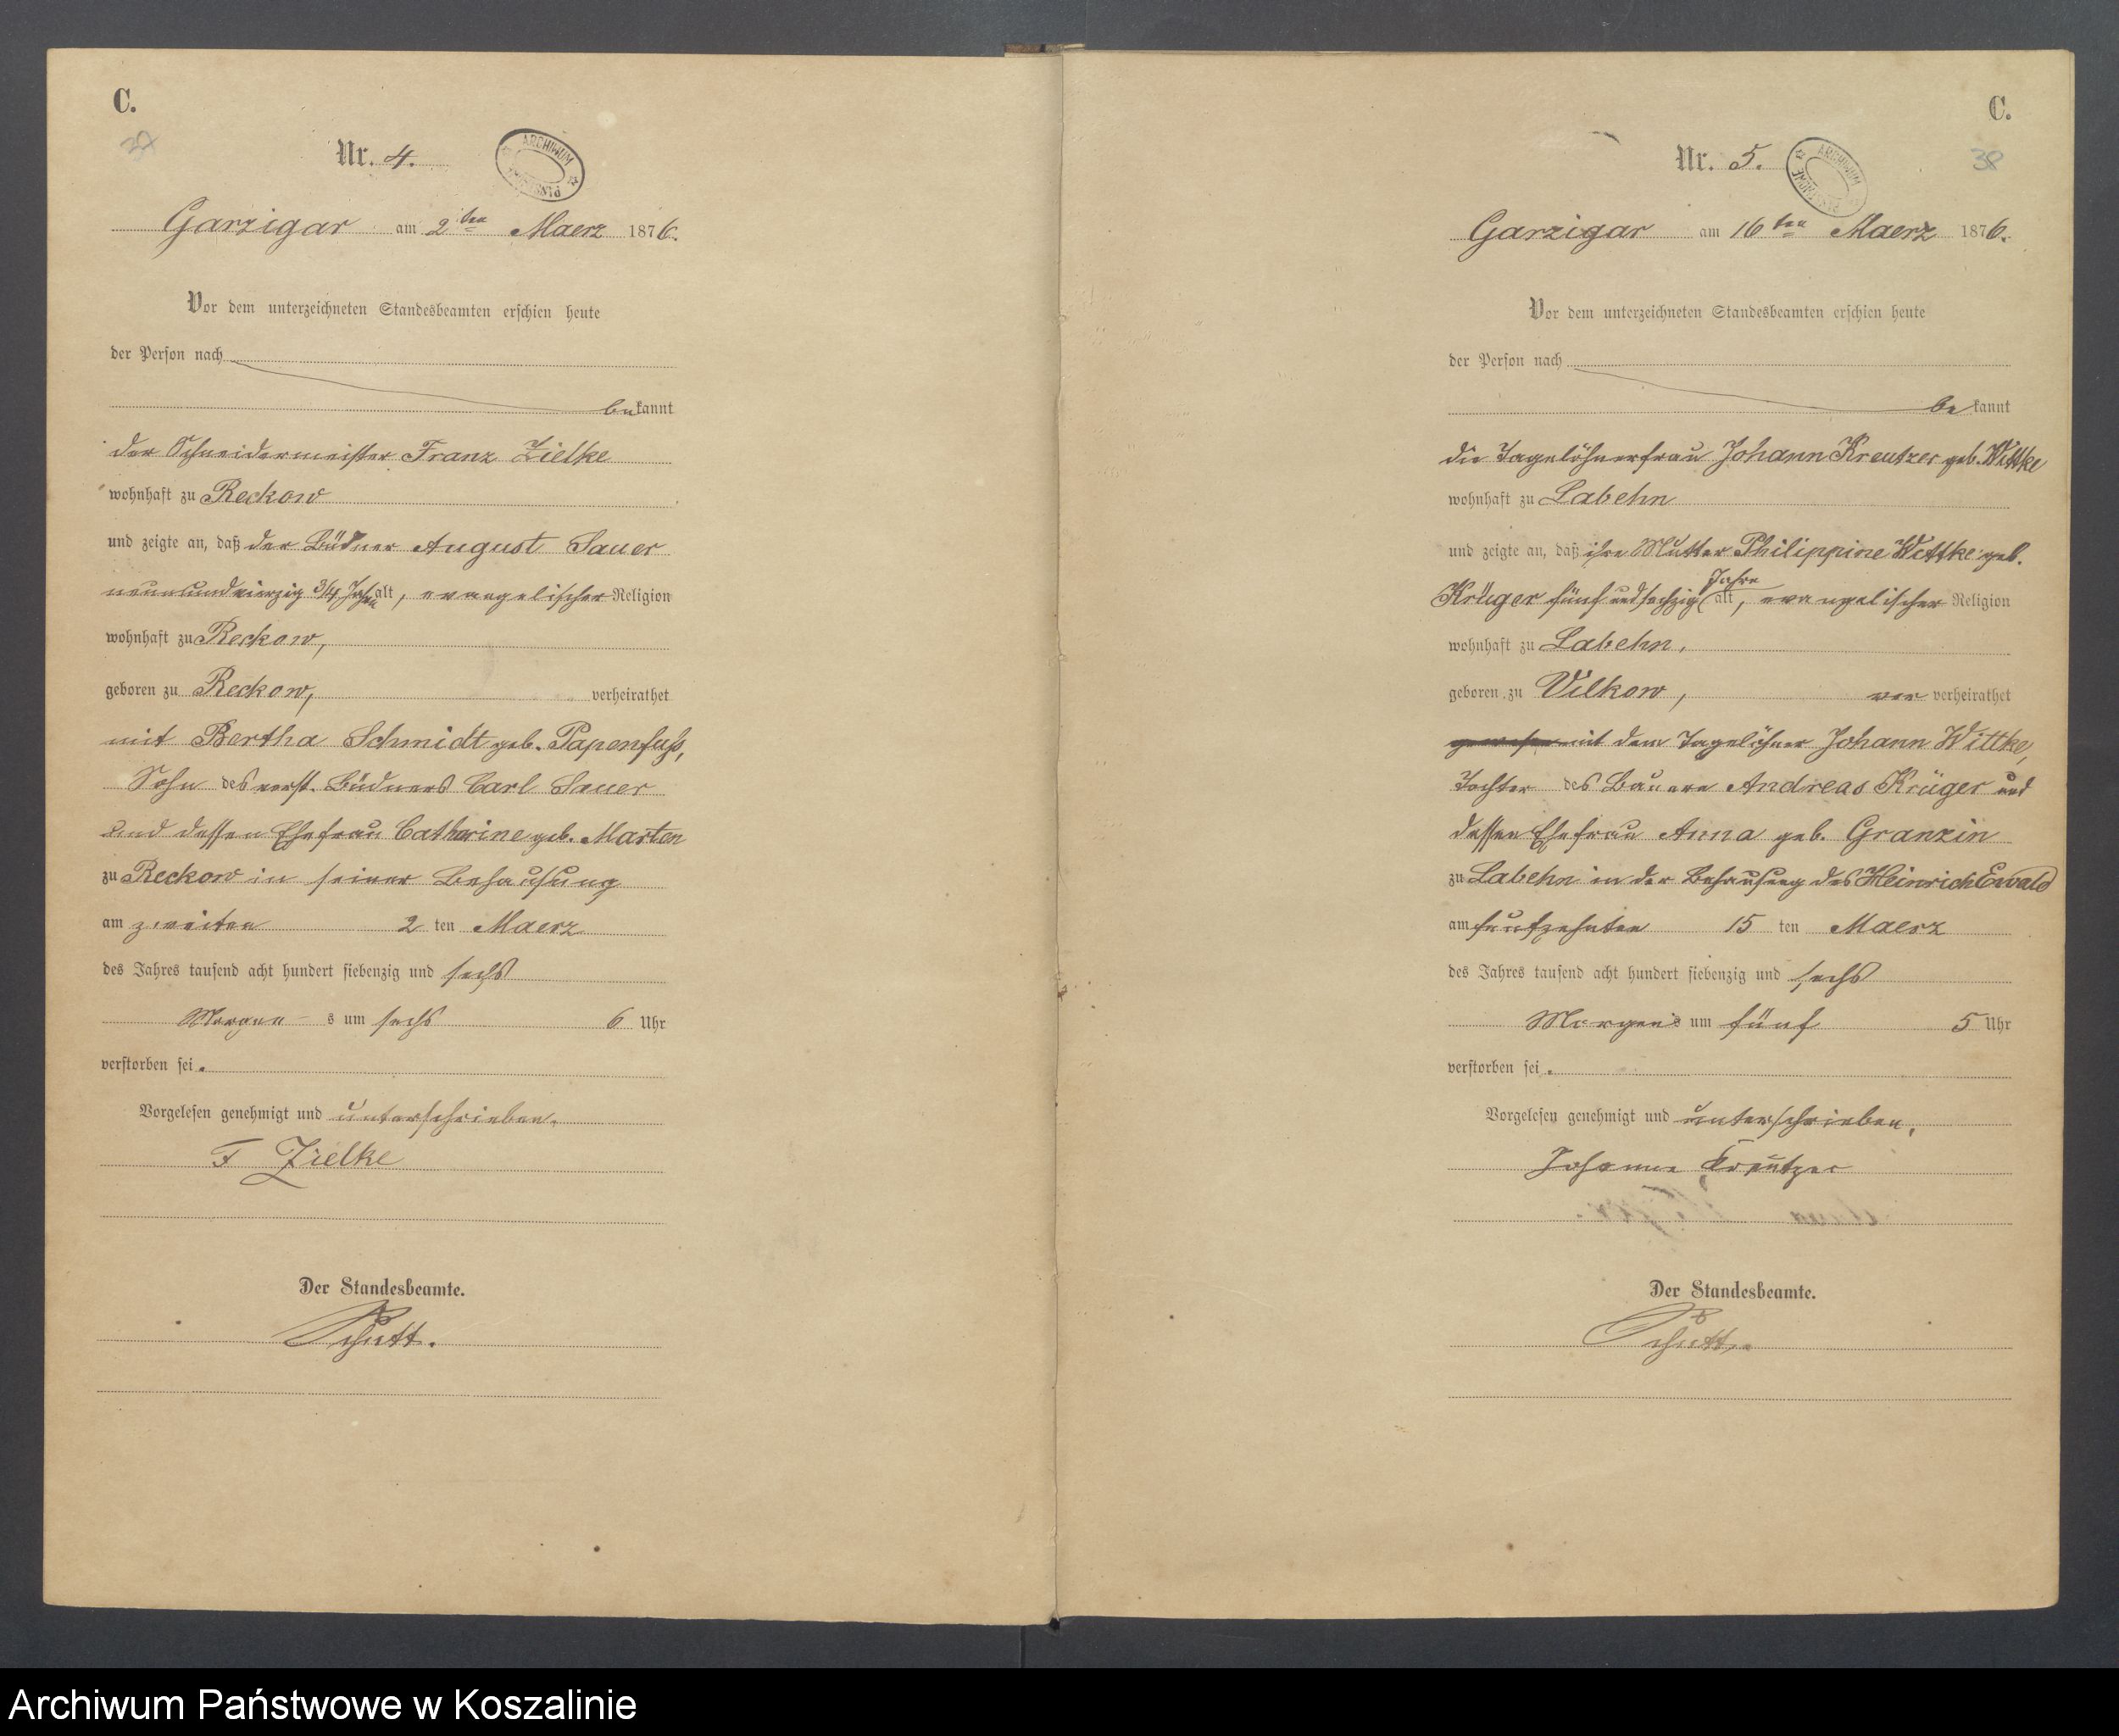 C.
37
Nr. 4.
ARCHIWUM
Garzigar am 2ten Maerz 1876.
Vor dem unterzeichneten Standesbeamten erschien heute
der Person nach
bekannt
der Schneidermeister Franz Zielke
wohnhaft zu Reckow
und zeigte an, daß der Büdner August Sauer
neunundvierzig 3/4 Jahre alt, evangelischer Religion
wohnhaft zu Reckow,
geboren zu Reckow, verheirathet
mit Bertha Schmidt geb. Papenfuß,
Sohn des verst. Büdners Carl Sauer
und dessen Ehefrau Catharine geb. Marten
zu Reckow in seiner Behausung
am zweiten 2 ten Maerz
des Jahres tausend acht hundert siebenzig und sechs
Morgens um sechs 6 Uhr
verstorben sei.
Vorgelesen genehmigt und unterschrieben.
F Zielke
Der Standesbeamte.
Schutt.
C.
38
Nr. 5.
ARCHIWUM
Garzigar am 16ten Maerz 1876.
Vor dem unterzeichneten Standesbeamten erschien heute
der Person nach
bekannt
die Tagelöhnerfrau Johann Kreutzer geb. Wittke
wohnhaft zu Labehn
und zeigte an, daß ihre Mutter Philippine Wittke geb.
Krüger fünf und sechzig Jahre alt, evangelischer Religion
wohnhaft zu Labehn,
geboren zu Vilkow, war verheirathet
gewesen mit dem Tagelöhner Johann Wittke,
Tochter des Bauern Andreas Krüger und
dessen Ehefrau Anna geb. Granzin
zu Labehn in der Behausung des Heinrich Ewald
am funfzehnten 15 ten Maerz
des Jahres tausend acht hundert siebenzig und sechs
Morgens um fünf 5 Uhr
verstorben sei.
Vorgelesen genehmigt und unterschrieben.
Johanne Kreutzer
Der Standesbeamte.
Schutt.
Archiwum Państwowe w Koszalinie